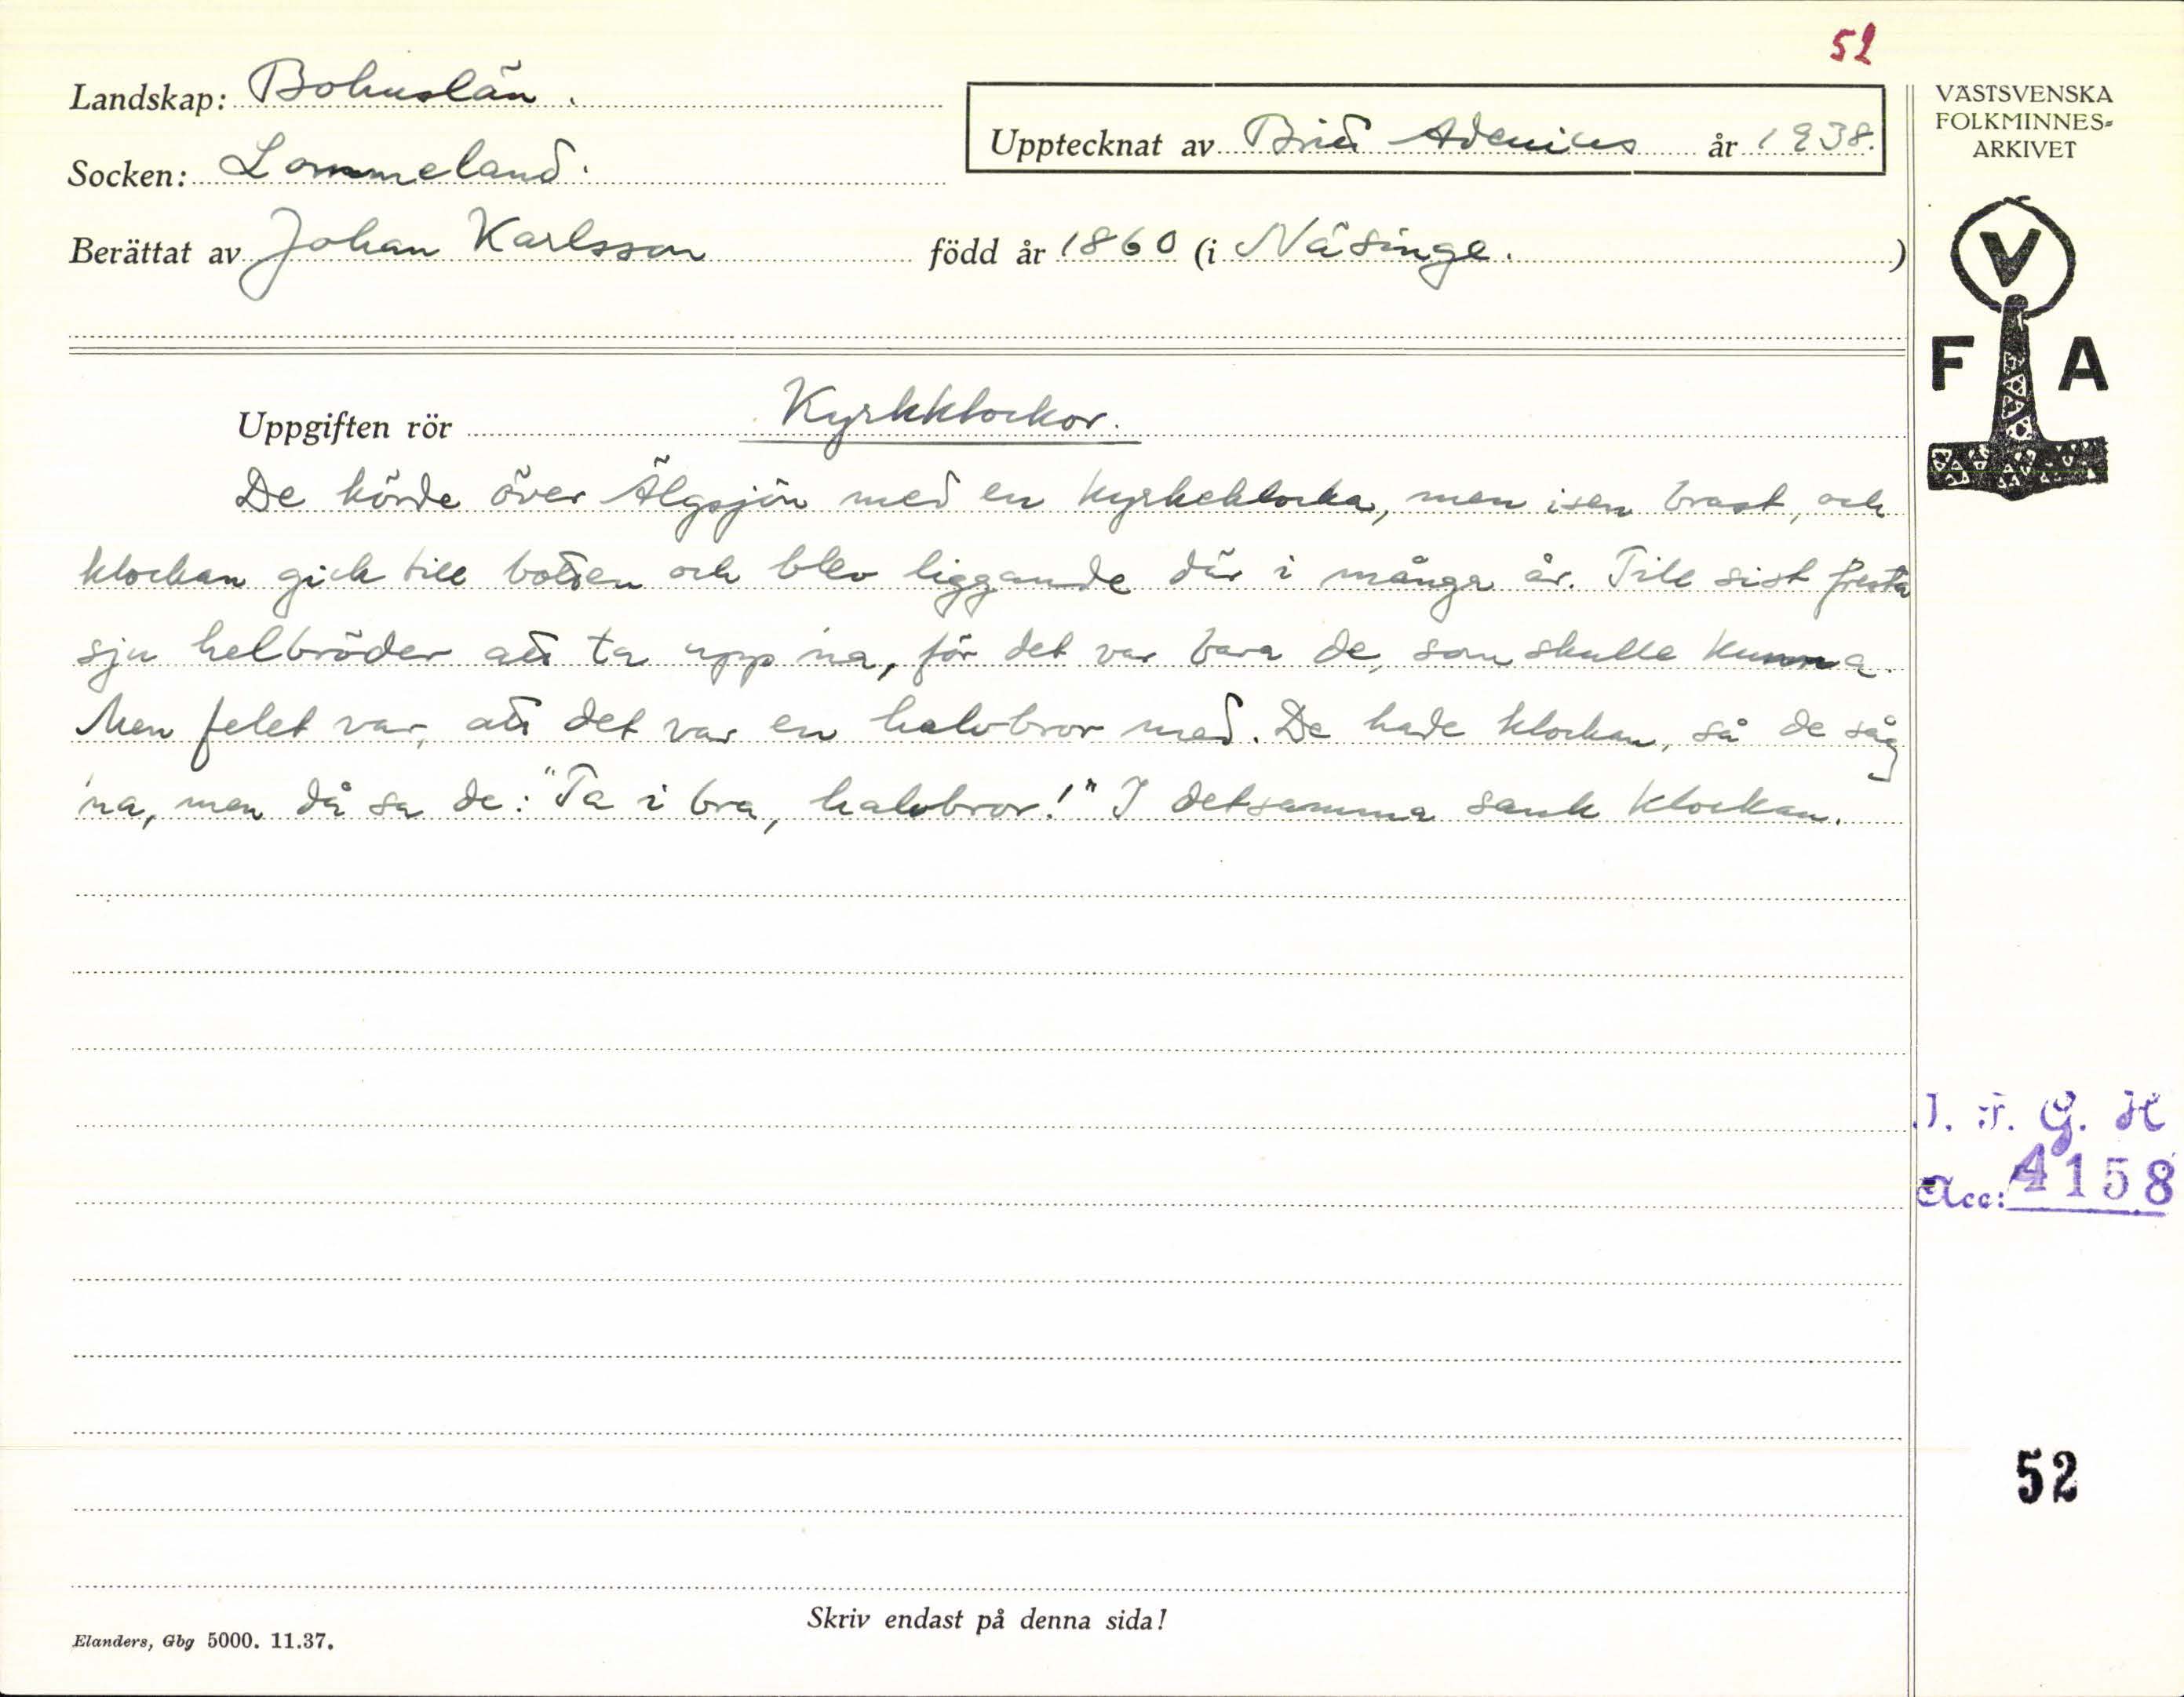 52
Landskap: Bohuslän.
Upptecknat av Brita Adenius år 1938.
Socken: Lommeland.
Berättat av Johan Karlsson född år 1860 (i Näsinge. )
Uppgiften rör Kyrkklockor.
De körde över Älgsjön med en kyrkeklocka, men isen brast, och
klockan gick till botten och blev liggande där i många år. Till sist fresta
sju helbröder att ta upp 'na, för det var bara de, som skulle kunna.
Men felet var, att det var en halvbror med. De hade klockan, så de såg
'na, men då sa de: "Ta i bra, halvbror!" I detsamma sank klockan.
Elanders, Gbg 5000. 11.37.
Skriv endast på denna sida!
VÄSTSVENSKA
FOLKMINNES-
ARKIVET
V
F A
I. F. G. H
Acc: 4158
52